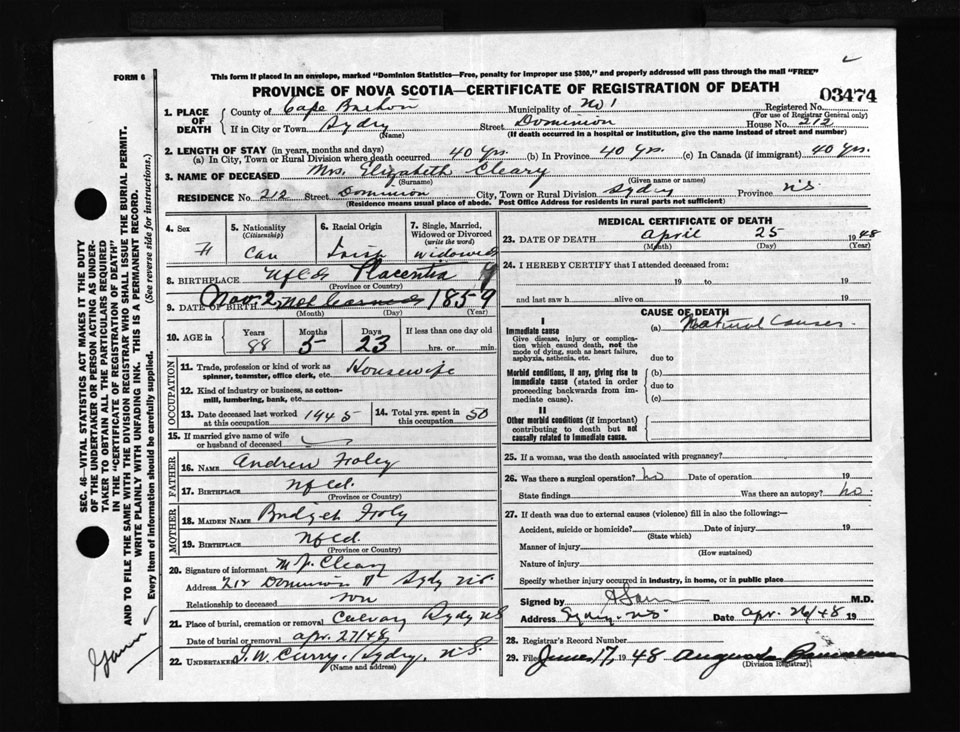 FORM 6
This form if placed in an envelope, marked "Dominion Statistics—Free, penalty for improper use $300," and properly addressed will pass through the mail "FREE"
PROVINCE OF NOVA SCOTIA—CERTIFICATE OF REGISTRATION OF DEATH
03474
1. PLACE OF DEATH County of Cape Breton Municipality of No 1 Registered No.
(For use of Registrar General only)
If in City or Town Sydney Street Dominion House No. 212
(Name) (If death occurred in a hospital or institution, give the name instead of street and number)
2. LENGTH OF STAY (in years, months and days)
(a) In City, Town or Rural Division where death occurred 40 Yrs. (b) In Province 40 Yrs. (c) In Canada (if immigrant) 40 Yrs.
3. NAME OF DECEASED Mrs. Elizabeth Cleary
(Surname) (Given name or names)
RESIDENCE No. 212 Street Dominion City, Town or Rural Division Sydney Province N.S.
(Residence means usual place of abode. Post Office Address for residents in rural parts not sufficient)
4. Sex F
5. Nationality (Citizenship) Can
6. Racial Origin Irish
7. Single, Married, Widowed or Divorced (write the word) widowed
8. BIRTHPLACE Nfld Placentia
(Province or Country)
9. DATE OF BIRTH Nov. 2 1859
(Month) (Day) (Year)
10. AGE in Years 88 Months 5 Days 23 If less than one day old
hrs. or min.
OCCUPATION
11. Trade, profession or kind of work as spinner, teamster, office clerk, etc. Housewife
12. Kind of industry or business, as cotton-mill, lumbering, bank, etc.
13. Date deceased last worked at this occupation 1945
14. Total yrs. spent in this occupation 50
15. If married give name of wife or husband of deceased
FATHER
16. NAME Andrew Froley
17. BIRTHPLACE Nfld.
(Province or Country)
MOTHER
18. MAIDEN NAME Bridget Froly
19. BIRTHPLACE Nfld.
(Province or Country)
20. Signature of informant M J. Cleary
Address 212 Dominion St Sydy N.S.
Relationship to deceased son
21. Place of burial, cremation or removal Calvary Sydy NS
Date of burial or removal apr. 27/48
22. UNDERTAKER J. W. Curry, Sydny, N.S.
(Name and address)
MEDICAL CERTIFICATE OF DEATH
23. DATE OF DEATH April 25 1948
(Month) (Day) (Year)
24. I HEREBY CERTIFY that I attended deceased from:
19 to 19
and last saw h alive on 19
CAUSE OF DEATH
I
Immediate cause (a) Natural Causes.
Give disease, injury or complication which caused death, not the mode of dying, such as heart failure, asphyxia, asthenia, etc.
due to
Morbid conditions, if any, giving rise to immediate cause (stated in order proceeding backwards from immediate cause).
(b)
due to
(c)
II
Other morbid conditions (if important) contributing to death but not causally related to immediate cause.
25. If a woman, was the death associated with pregnancy?
26. Was there a surgical operation? no Date of operation 19
State findings Was there an autopsy? no.
27. If death was due to external causes (violence) fill in also the following:—
Accident, suicide or homicide? Date of injury 19
(State which)
Manner of injury
(How sustained)
Nature of injury
Specify whether injury occurred in industry, in home, or in public place
Signed by M.D.
Address Sydney. N.S. Date Apr. 26/48 19
28. Registrar's Record Number
29. Filed June 17, 1948 Augusta
(Division Registrar)
SEC. 46—VITAL STATISTICS ACT MAKES IT THE DUTY
OF THE UNDERTAKER OR PERSON ACTING AS UNDER-
TAKER TO OBTAIN ALL THE PARTICULARS REQUIRED
IN THE "CERTIFICATE OF REGISTRATION OF DEATH"
AND TO FILE THE SAME WITH THE DIVISION REGISTRAR WHO SHALL ISSUE THE BURIAL PERMIT.
WRITE PLAINLY WITH UNFADING INK. THIS IS A PERMANENT RECORD.
Every item of information should be carefully supplied. (See reverse side for instructions.)